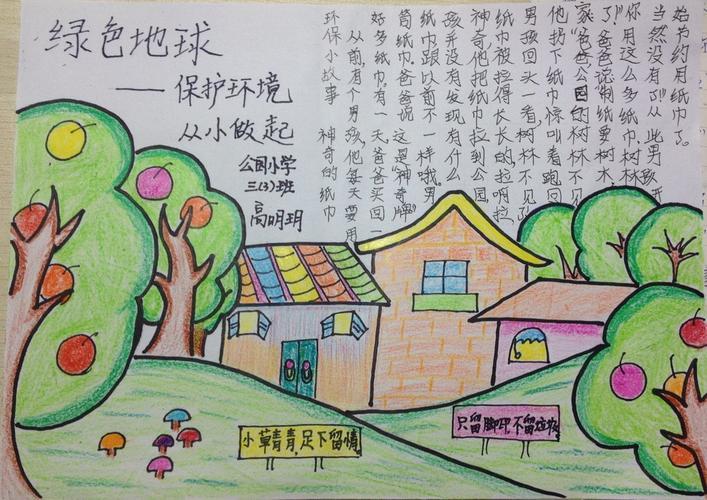 绿色地球
——保护环境
从小做起
公园小学
三(3)班
高明玥
环保小故事 神奇的纸巾
从前,有个男孩,他每天要用
好多纸巾。有一天,爸爸买回一
筒纸巾。爸爸说这是“神奇牌”
纸巾跟以前不一样哦。男
孩并没有发现有什么
神奇他把纸巾拉到公园,
纸巾被拉得长长的,拉啊拉
男孩回头一看,树林不见了
他扔下纸巾惊叫着跑回
家“爸爸公园的树林不见
了!”爸爸说“制纸要树木,
你用这么多纸巾,树林
当然没有了!”从此男孩开
始节约用纸巾了。
小草青青,足下留情。
只留脚印,不留垃圾。